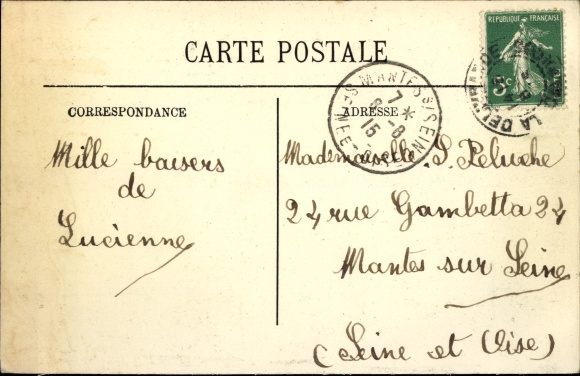 CARTE POSTALE
RÉPUBLIQUE FRANÇAISE
5c
LA DELIVRANDE
MANTES S/ SEINE
7 *
8 - 8
15
SEINE-ET-OISE
CORRESPONDANCE
ADRESSE
Mille baisers
de
Lucienne
Mademoiselle S. Peluche
24 rue Gambetta 24
Mantes sur Seine
(Seine et Oise)